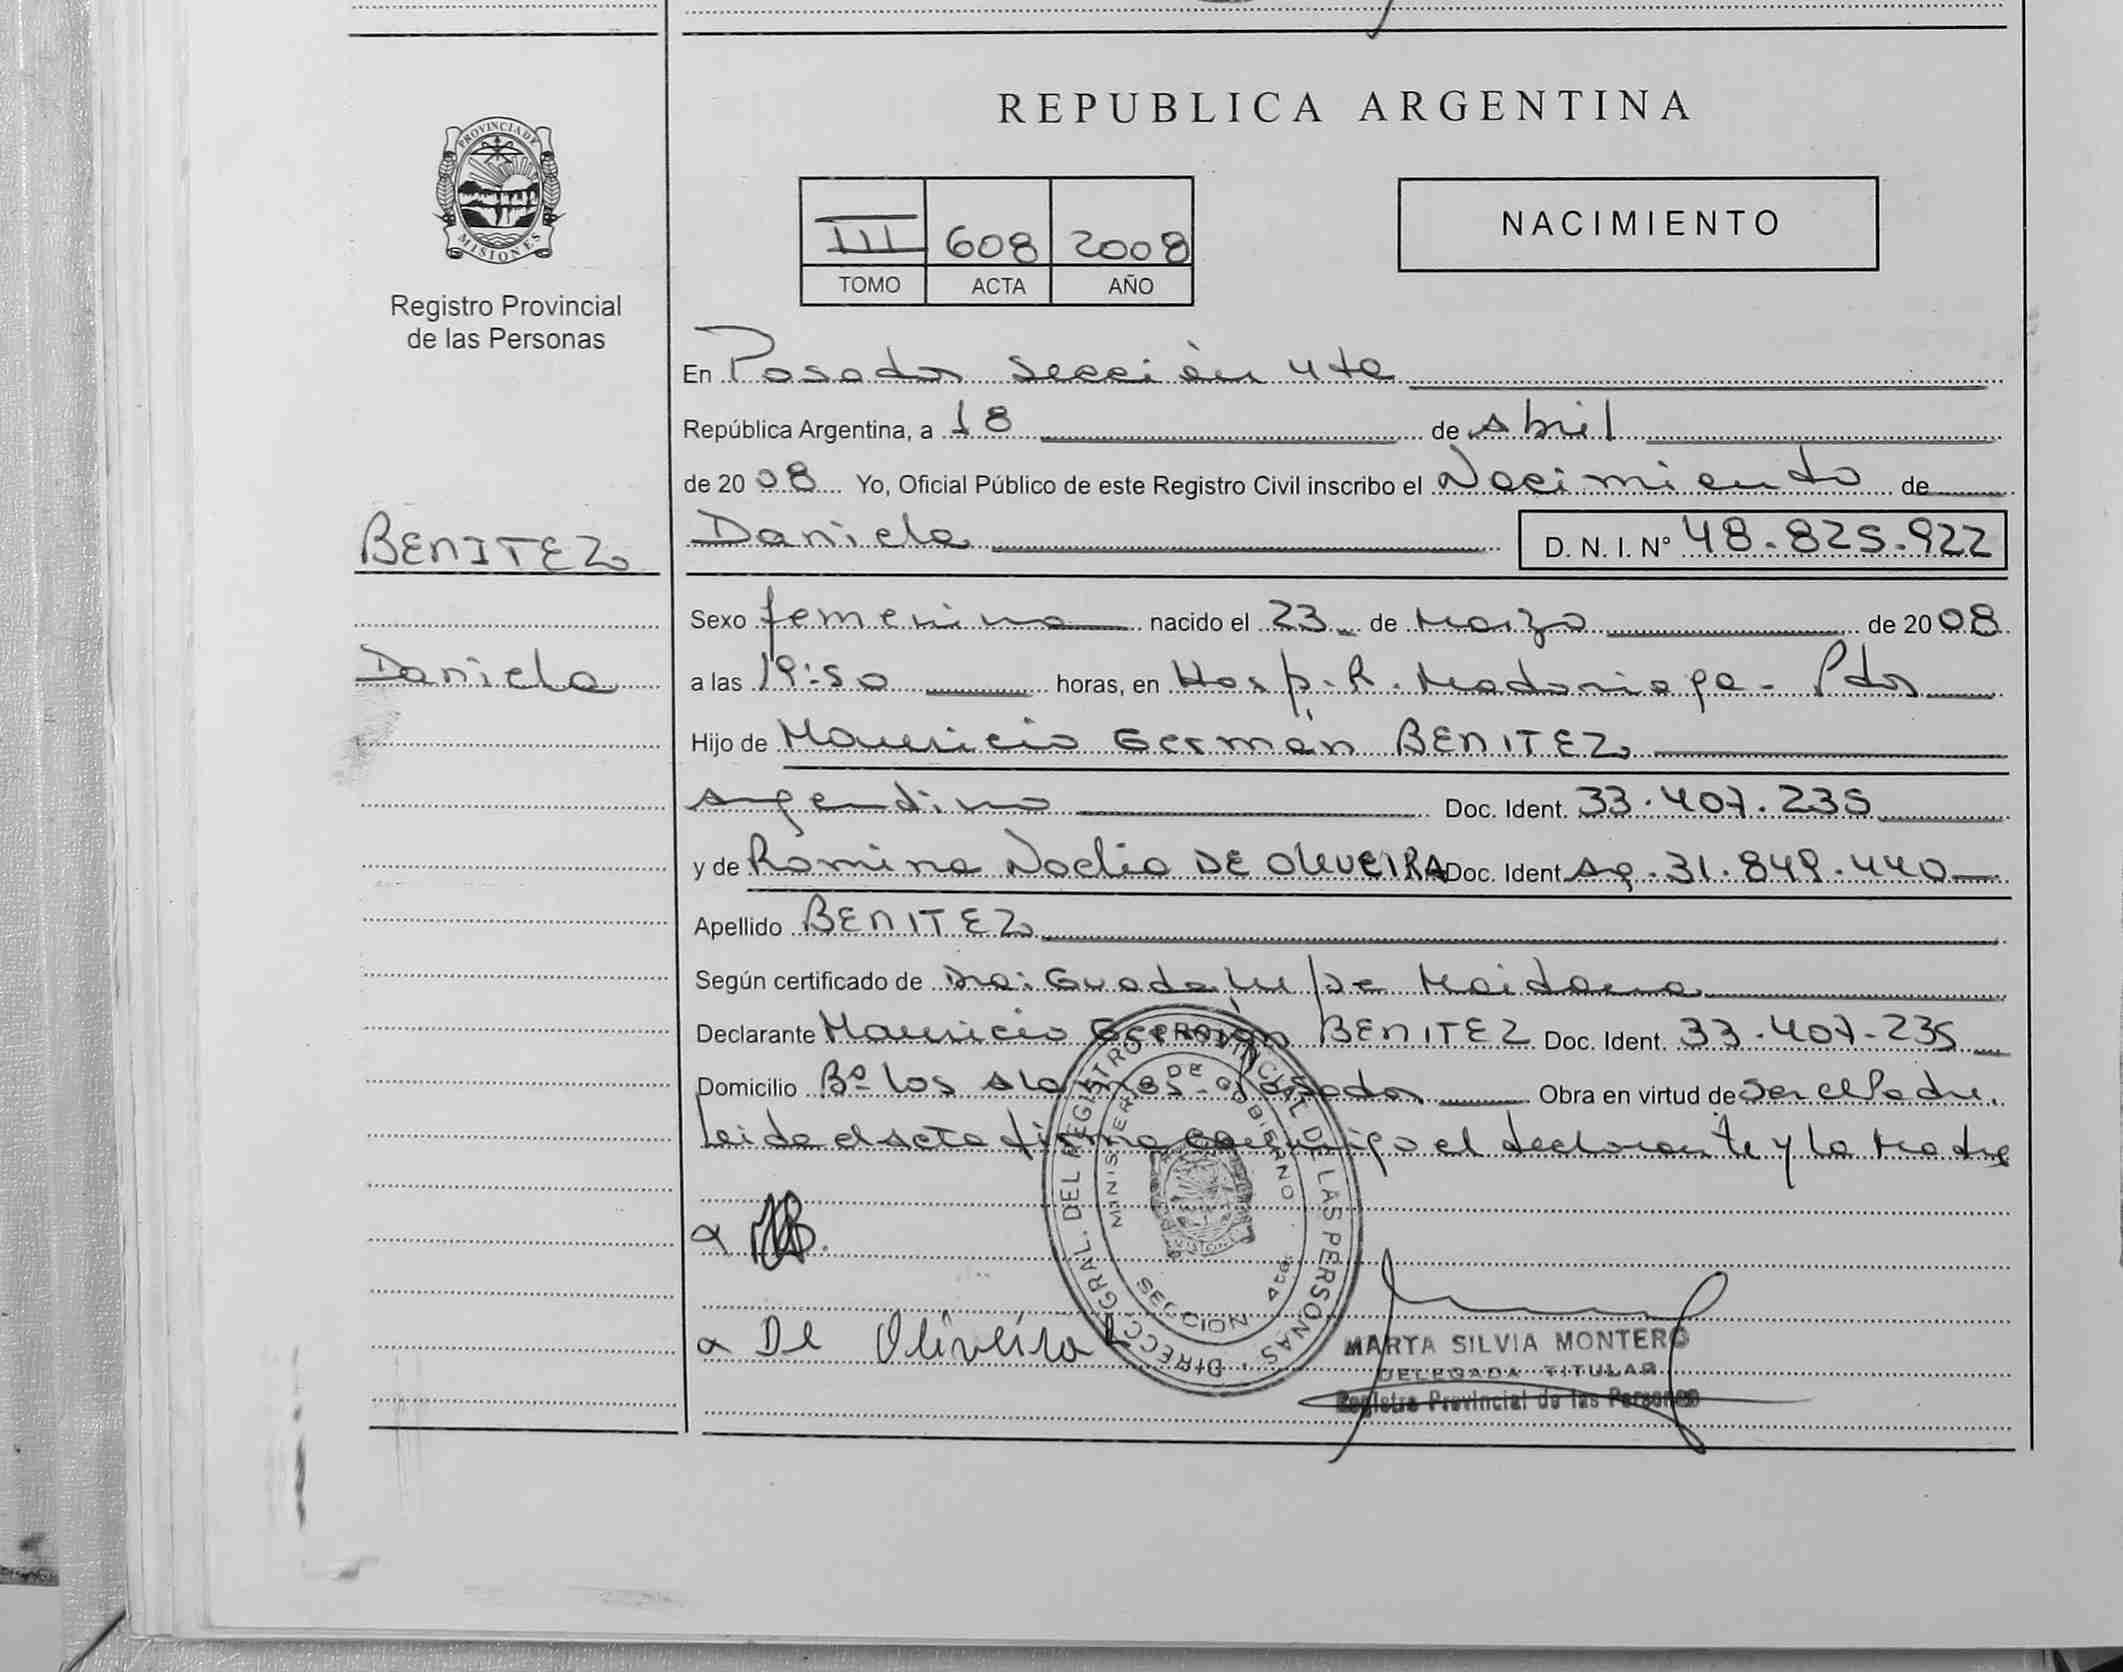 PROVINCIA DE
MISIONES
Registro Provincial
de las Personas
BENITEZ
Daniela
REPUBLICA ARGENTINA
III 608 2008
TOMO ACTA AÑO
NACIMIENTO
En Posadas Sección 4ta
República Argentina, a 18 de Abril
de 2008 Yo, Oficial Público de este Registro Civil inscribo el Nacimiento de
Daniela D. N. I. N° 48.825.922
Sexo femenino nacido el 23 de Marzo de 2008
a las 19:50 horas, en Hosp. R. Madariaga - Pdas
Hijo de Mauricio Germán BENITEZ
Argentino Doc. Ident. 33.407.235
y de Romina Noelia DE OLIVEIRA Doc. Ident. Ag. 31.849.440
Apellido BENITEZ
Según certificado de Dra: Guadalupe Maidana
Declarante Mauricio Germán BENITEZ Doc. Ident. 33.407.235
Domicilio Bº Los Alamos - Posadas Obra en virtud de ser el Padre.
Leida el acta firma conmigo el declarante y la Madre
De Oliveira
DIRECC. GRAL. DEL REGISTRO PROVINCIAL DE LAS PERSONAS
MINISTERIO DE GOBIERNO
SECCION 4ta
MARTA SILVIA MONTERO
DELEGADA TITULAR
Registro Provincial de las Personas